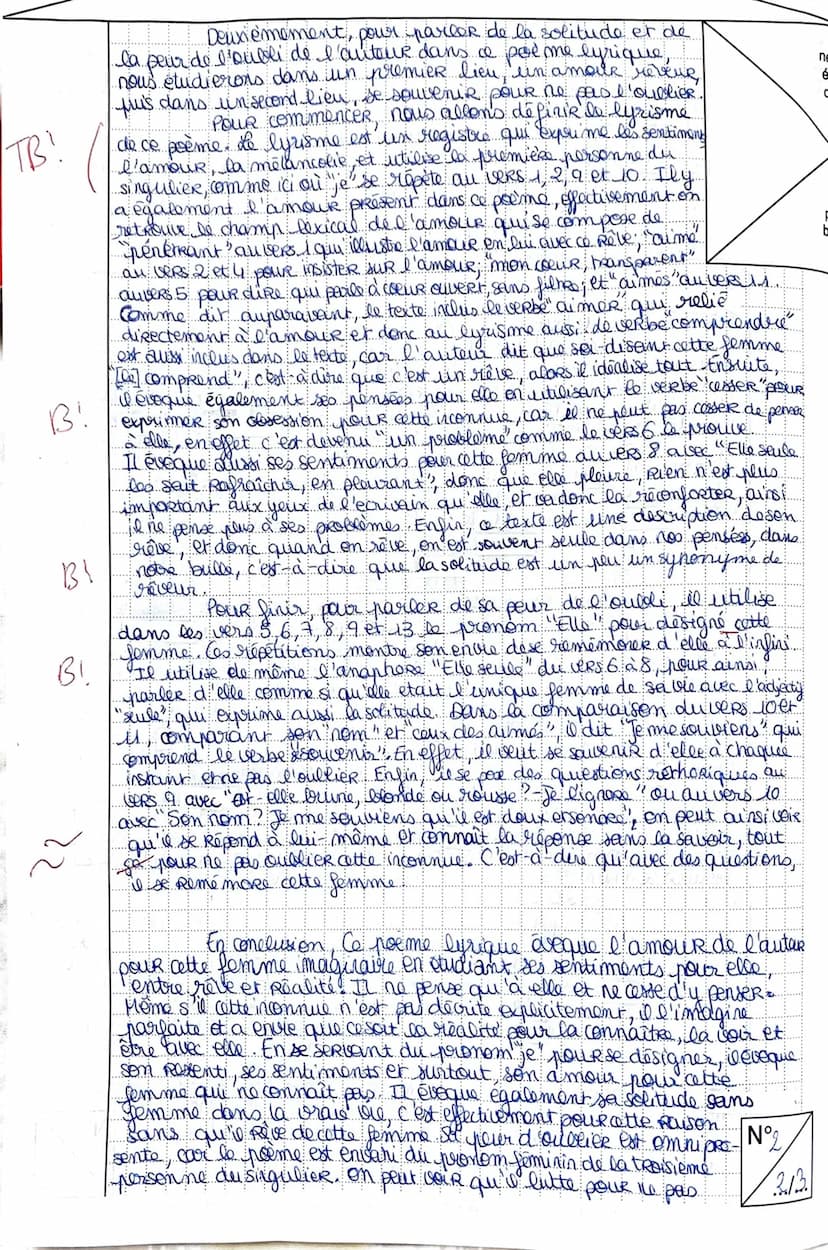 Deuxièmement, pour parler de la solitude et de
la peur de l'oubli de l'auteur dans ce poème lyrique,
nous étudierons dans un premier lieu, un amour rêveur,
puis dans un second lieu, se souvenir pour ne pas l'oublier.
Pour commencer, nous allons définir le lyrisme
de ce poème. Le lyrisme est un registre qui exprime les sentiments
TB!
l'amour, la mélancolie, et utilise la première personne du
singulier, comme ici où "je" se répète au vers 1, 2, 9 et 10. Il y
a également l'amour présent dans ce poème, effectivement on
retrouve le champ lexical de l'amour qui se compose de
"pénétrant" au vers 1 qui illustre l'amour en lui avec ce rêve; "aime"
au vers 2 et 4 pour insister sur l'amour; "mon coeur, transparent"
au vers 5 pour dire qui parle à coeur ouvert, sans filtre; et "aimés" au vers 11.
Comme dit auparavant, le texte inclus le verbe "aimer" qui relié
directement à l'amour et donc au lyrisme aussi. Le verbe "comprendre"
est aussi inclus dans le texte, car l'auteur dit que soi-disant cette femme
"[le] comprend", c'est-à-dire que c'est un rêve, alors il idéalise tout. Ensuite,
il évoque également ses pensées pour elle en utilisant le verbe "cesser" pour
B!
exprimer son obsession pour cette inconnue, car il ne peut pas cesser de penser
à elle, en effet c'est devenu "un problème" comme le vers 6 le prouve.
Il évoque aussi ses sentiments pour cette femme au vers 8 avec "Elle seule
les sait rafraîchir, en pleurant", donc que elle pleure, rien n'est plus
important aux yeux de l'écrivain qu'elle, et va donc la réconforter, ainsi
il ne pense plus à ses problèmes. Enfin, ce texte est une description de son
rêve, et donc quand on rêve, on est souvent seule dans nos pensées, dans
B!
notre bulle, c'est-à-dire que la solitude est un peu un synonyme de
rêveur.
Pour finir, pour parler de sa peur de l'oubli, il utilise
dans les vers 5, 6, 7, 8, 9 et 13 le pronom "Elle" pour désigné cette
femme. Ces répétitions montre son envie de se remémorer d'elle à l'infini.
B!
Il utilise de même l'anaphore "Elle seule" du vers 6 à 8, pour ainsi
parler d'elle comme si qu'elle était l'unique femme de sa vie avec l'adjectif
"seule", qui exprime aussi la solitude. Dans la comparaison du vers 10 et
11, comparant son "nom" et "ceux des aimés", il dit "Je me souviens" qui
comprend le verbe "souvenir". En effet, il veut se souvenir d'elle à chaque
instant et ne pas l'oublier. Enfin, il se pose des questions rethoriques au
vers 9 avec "Est-elle brune, blonde ou rousse? - Je l'ignore" ou au vers 10
avec "Son nom? Je me souviens qu'il est doux et sonore", on peut ainsi voir
qu'il se répond à lui-même et connaît la réponse sans la savoir, tout
pour ne pas oublier cette inconnue. C'est-à-dire qu'avec des questions,
il se remémore cette femme.
En conclusion, ce poème lyrique évoque l'amour de l'auteur
pour cette femme imaginaire en étudiant ses sentiments pour elle,
entre rêve et réalité. Il ne pense qu'à elle et ne cesse d'y penser.
Même s'il cette inconnue n'est pas décrite explicitement, il l'imagine
parfaite et a envie que ce soit la réalité pour la connaître, la voir et
être avec elle. En se servant du pronom "je" pour se désigner, il évoque
son ressenti, ses sentiments et surtout, son amour pour cette
femme qui ne connaît pas. Il évoque également sa solitude sans
femme dans la vraie vie, c'est effectivement pour cette raison
sans qu'il rêve de cette femme. Sa peur d'oublier est omnipré-
sente, car le poème est envahi du pronom féminin de la troisième
personne du singulier. On peut voir qu'il lutte pour ne pas
N°2
3/3